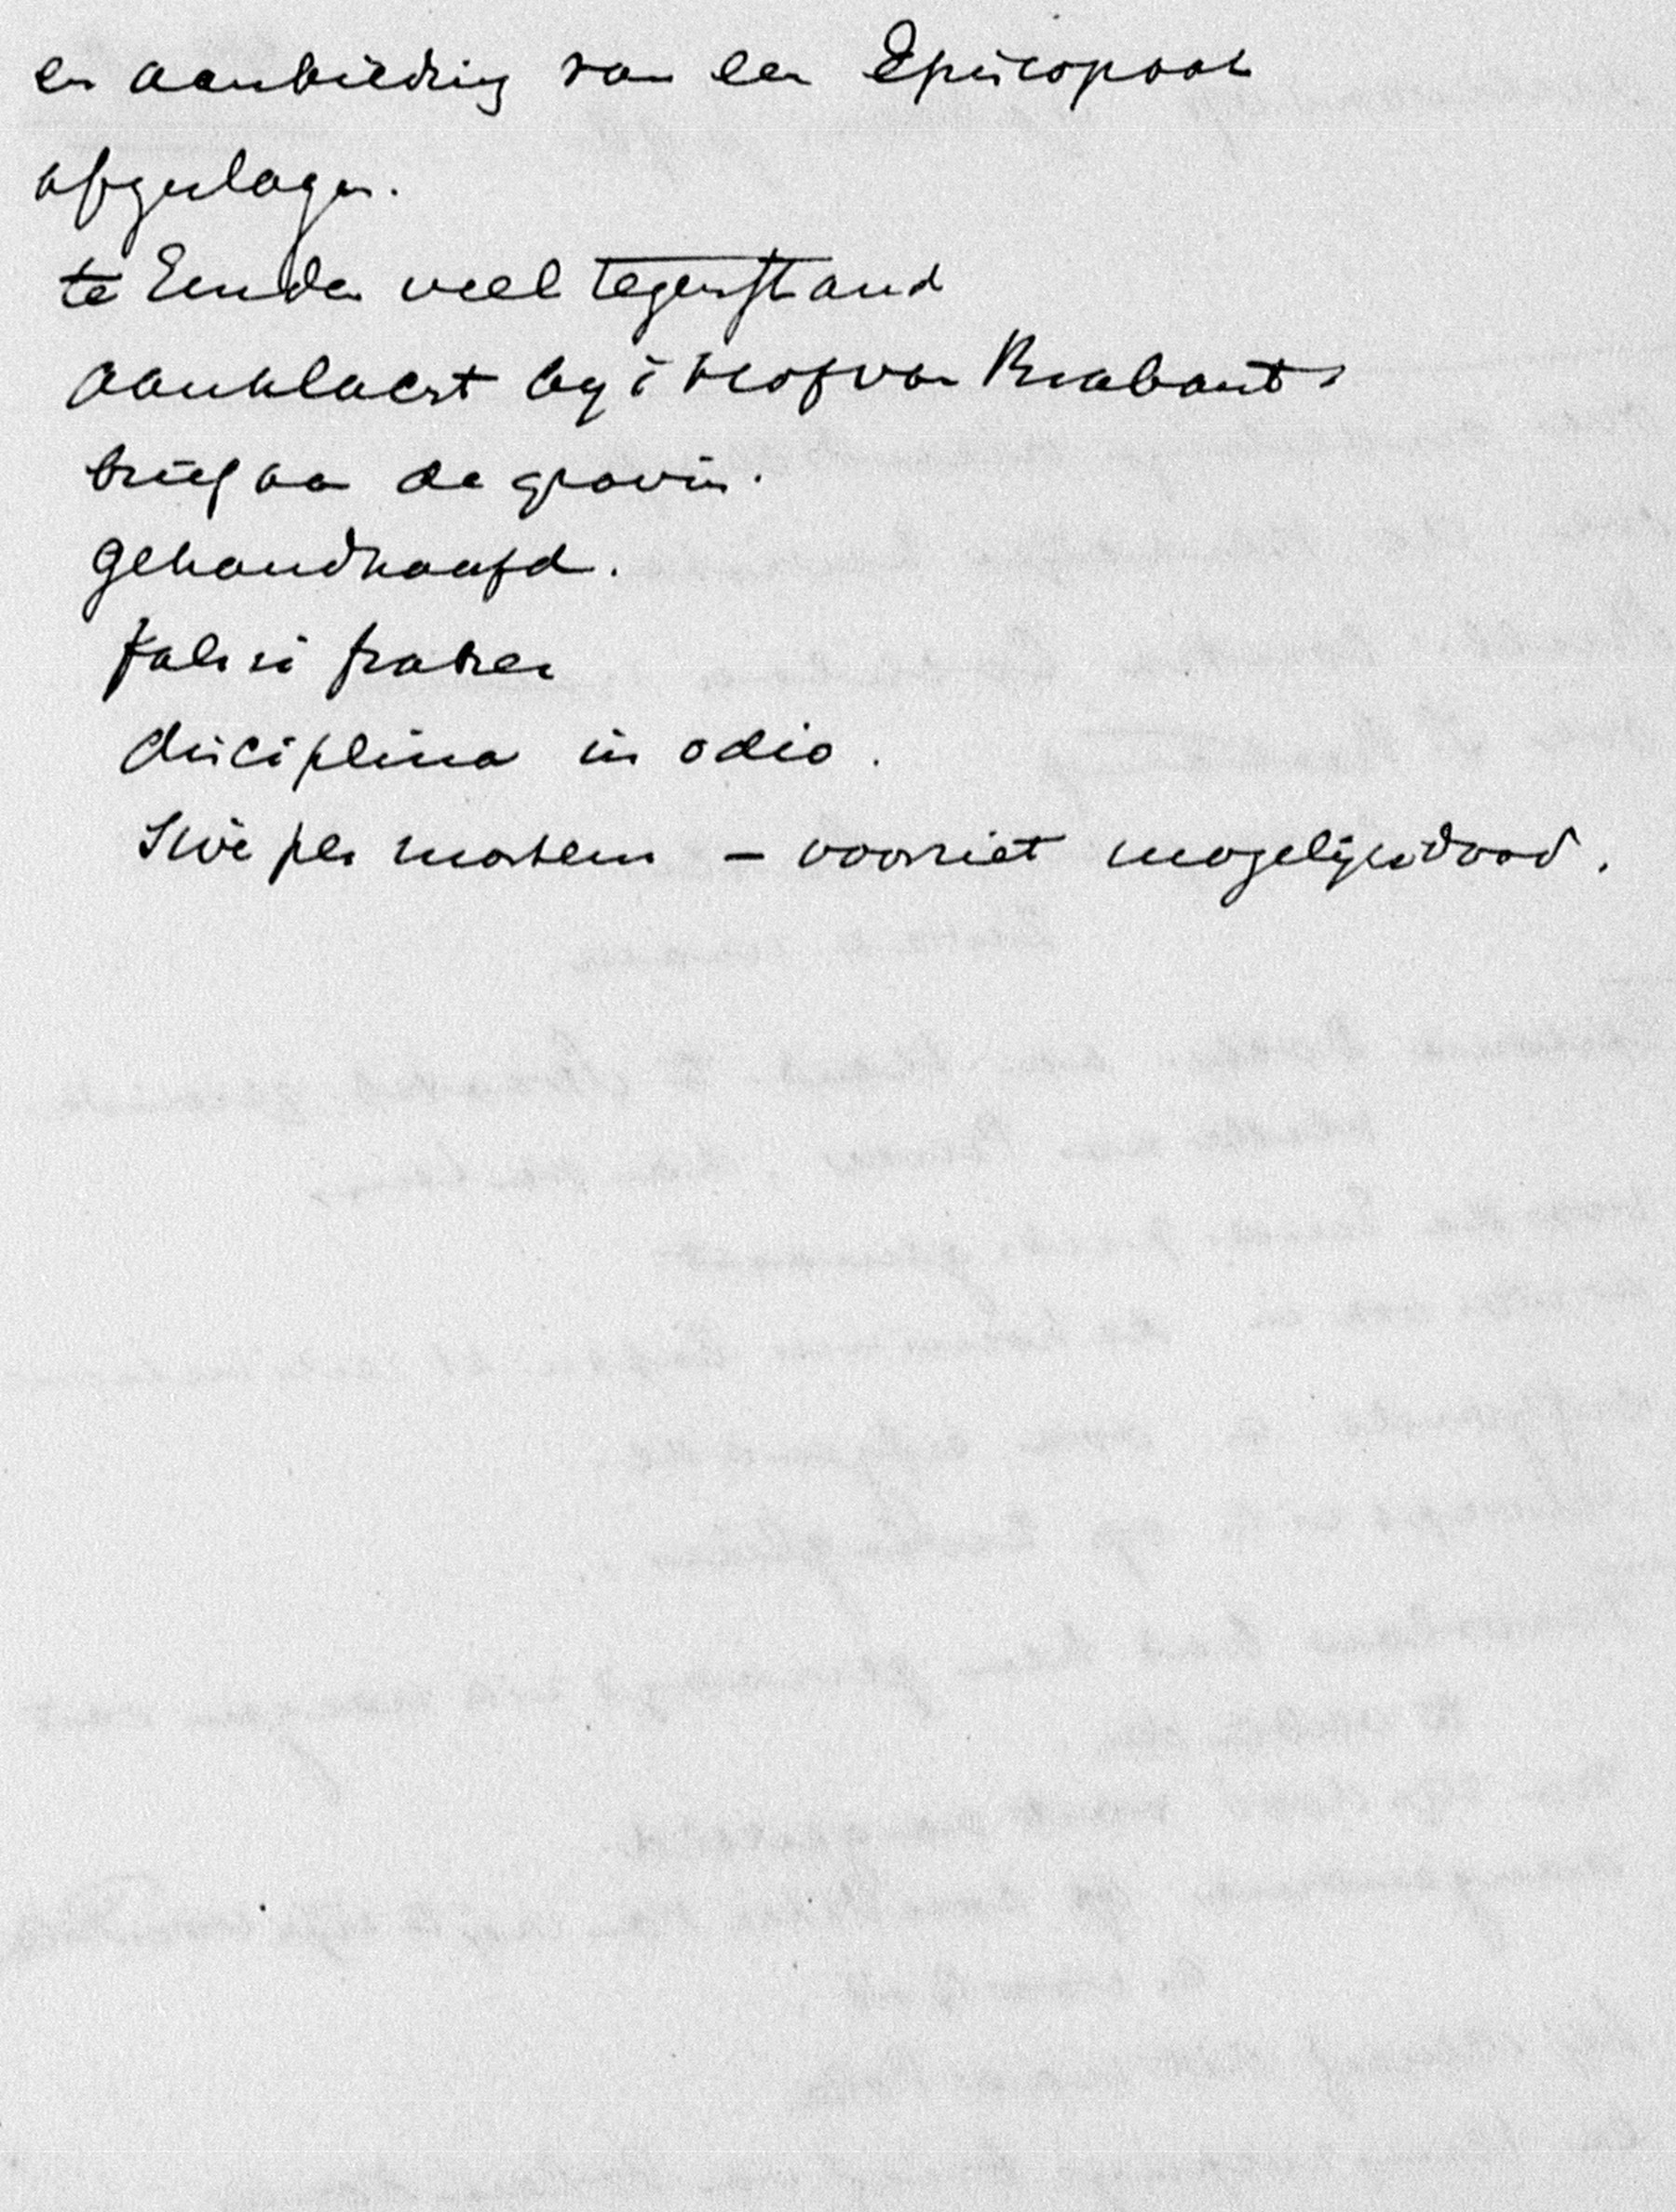 en aanbieding van een Episcopaat
afgeslagen.
te Emden veel tegenstand
aanklacht by 't Hof van Brabant.
brief aan de gravin.
gehandhaafd.
falsi fratres
disciplina in odio.
Sive per mortem – voorziet mogelijke dood.